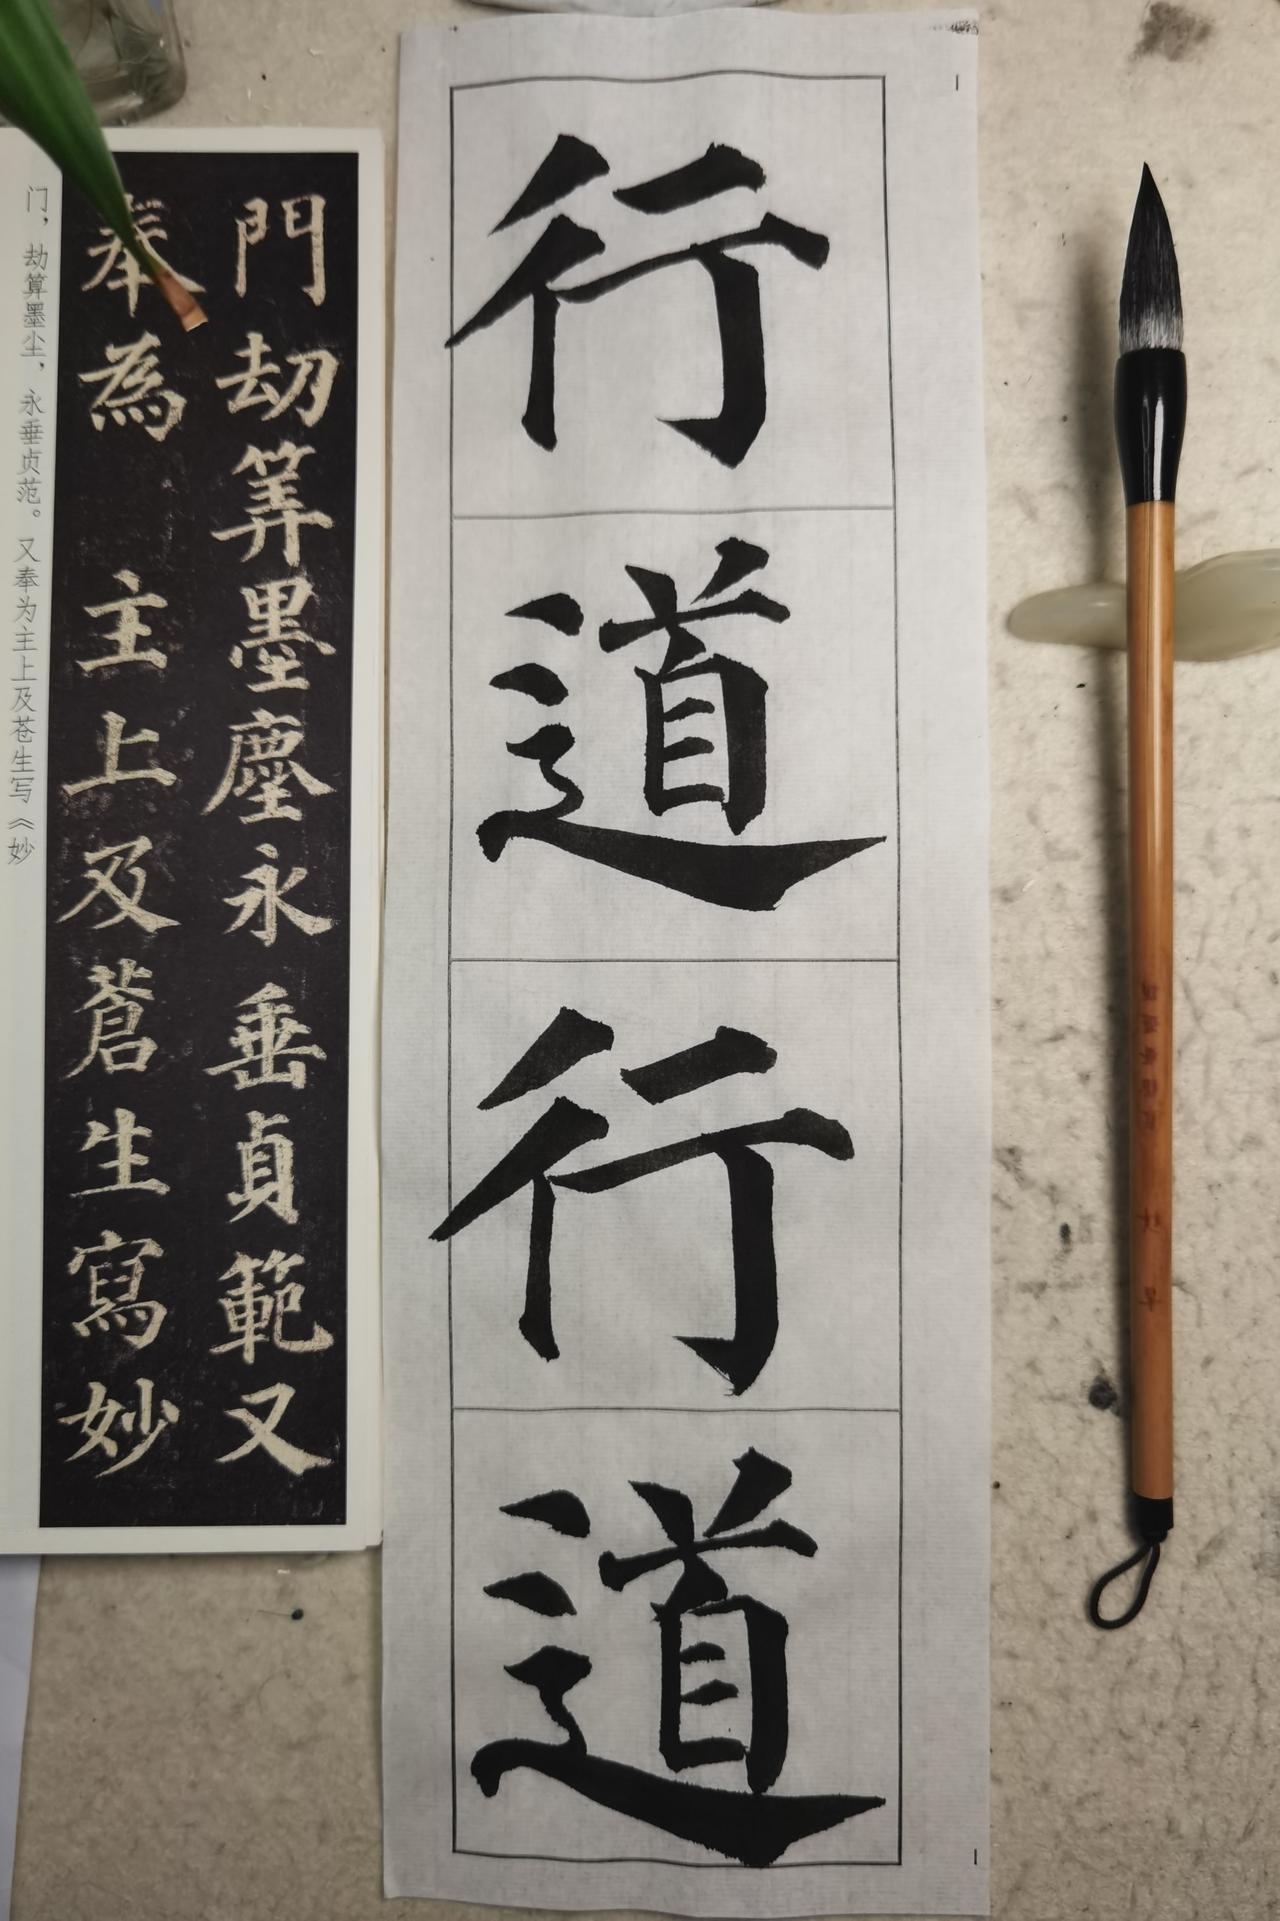 行道行道
門劫筭墨塵永垂貞範又
奉為 主上及蒼生寫妙
门，劫算墨尘，永垂贞范。又奉为主上及苍生写《妙